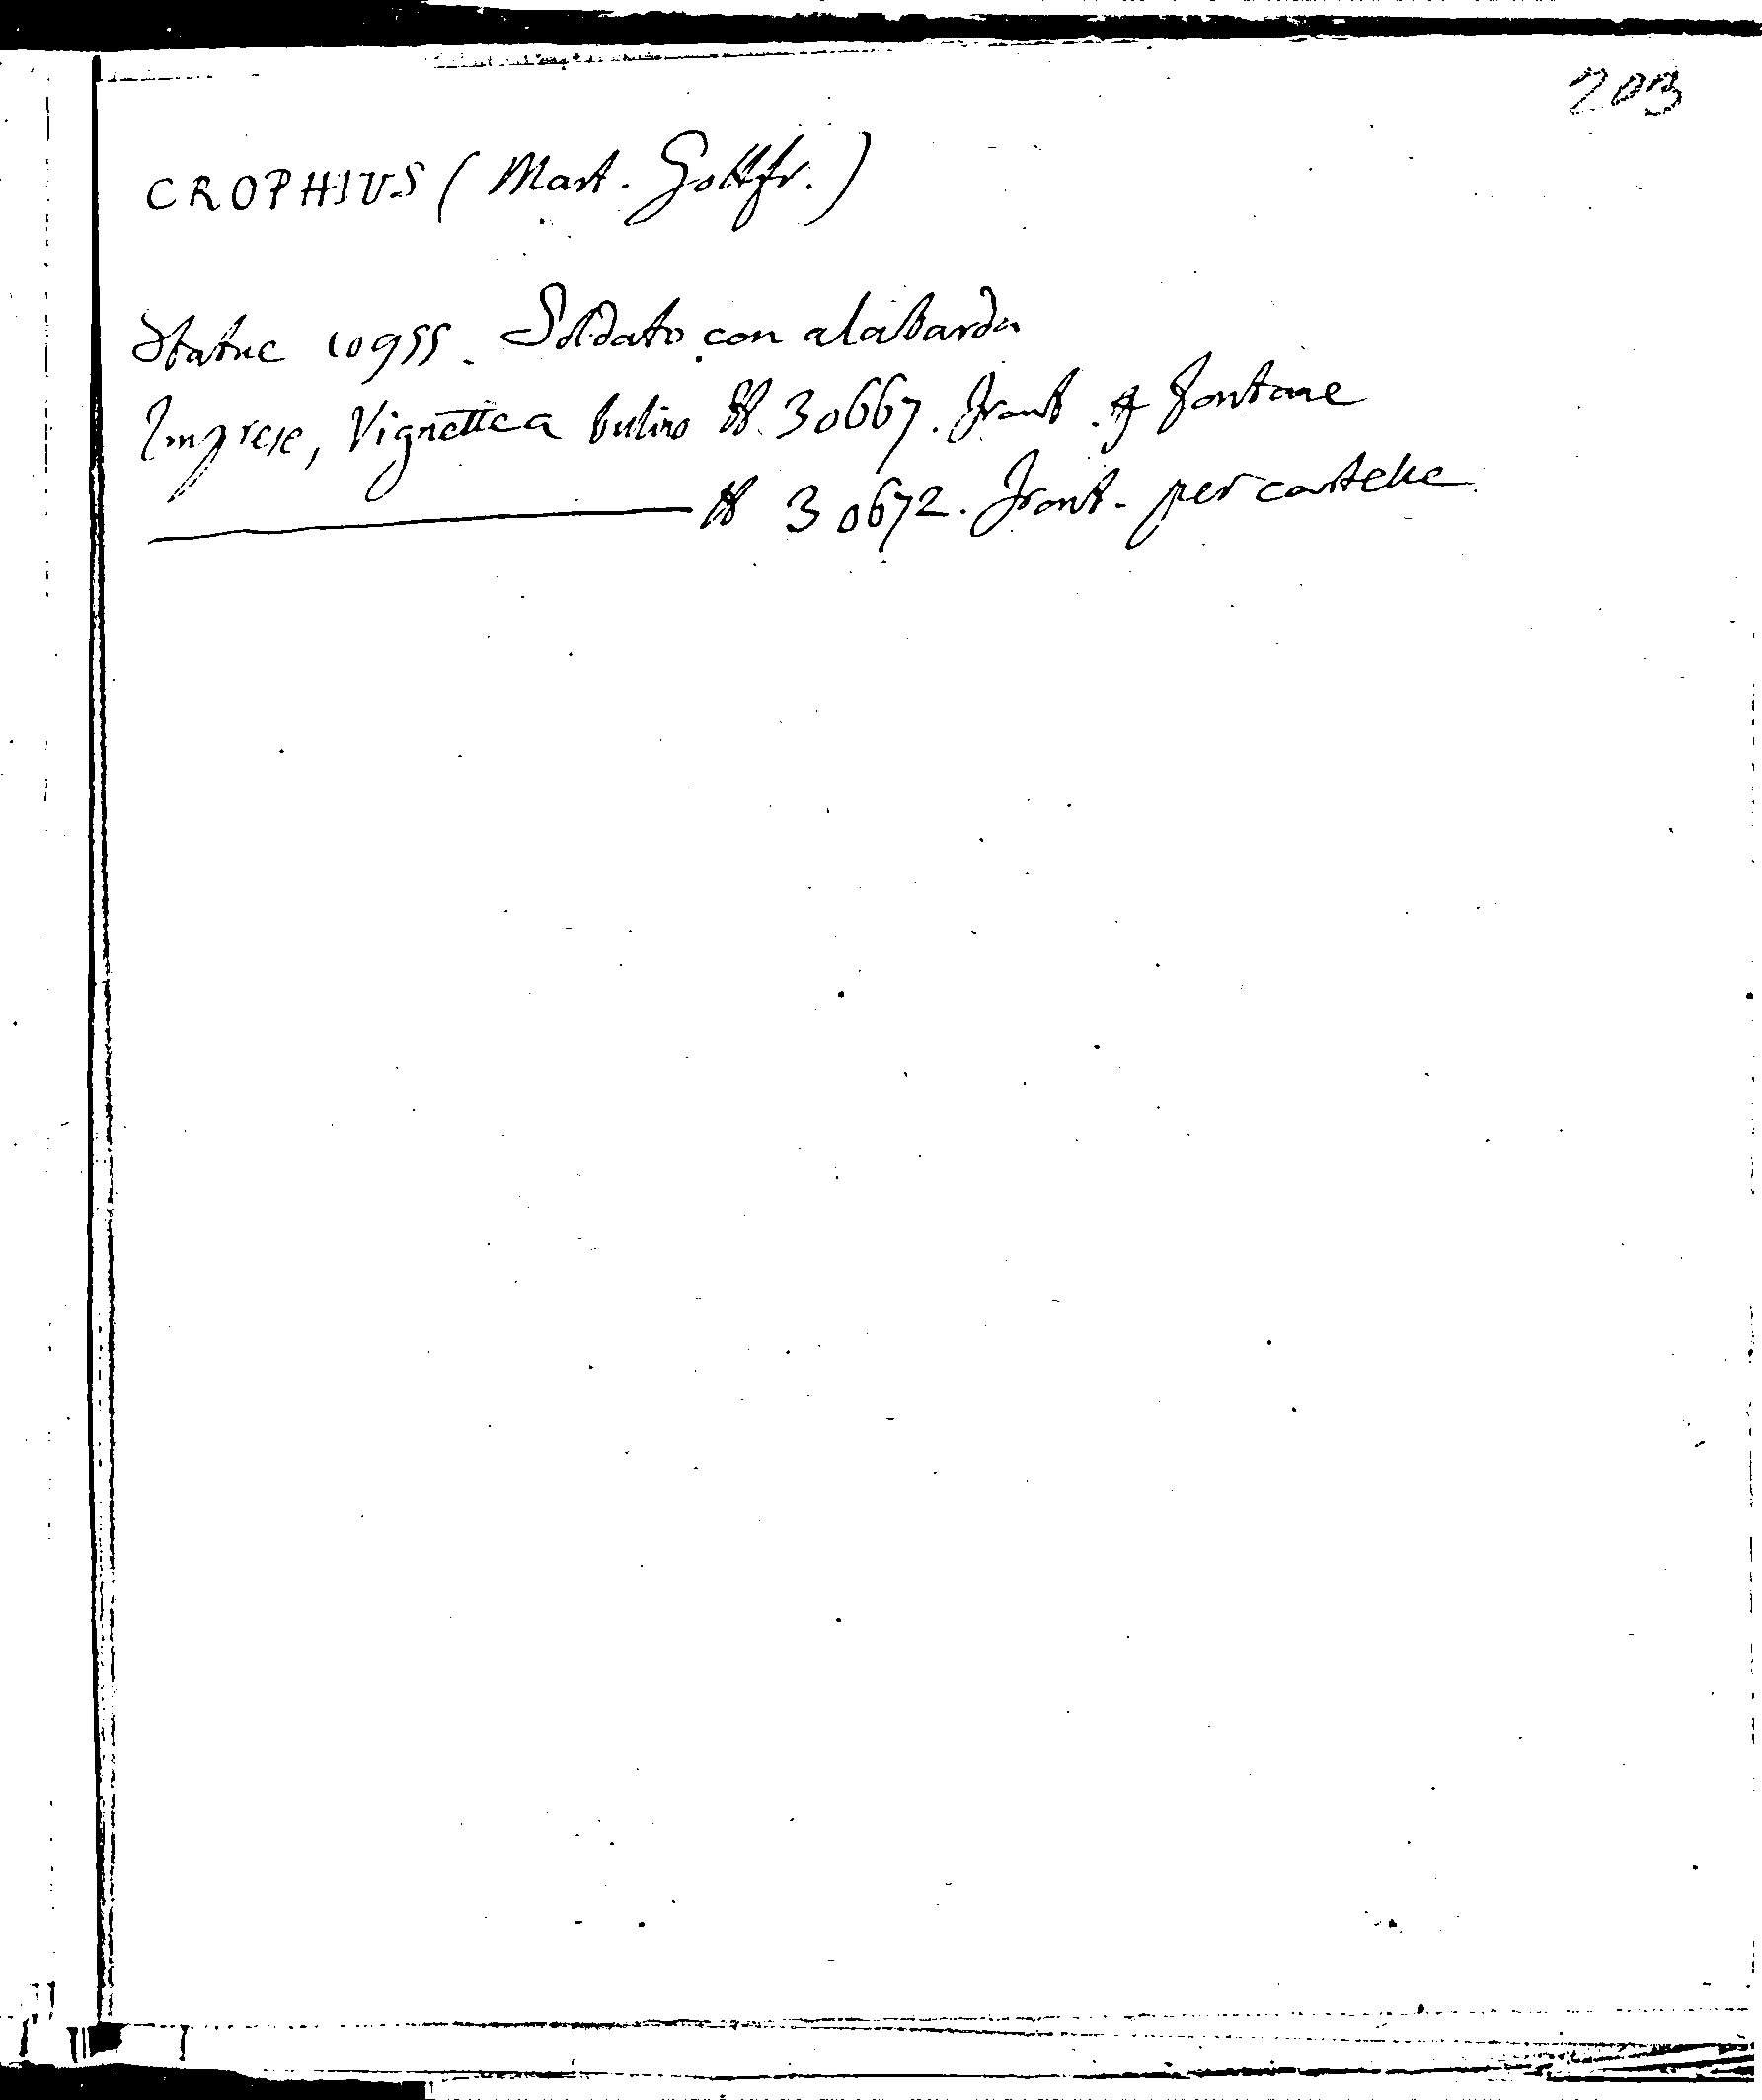 203
CROPHIUS (Mart. Gottfr.)
Statue 10955. Soldato con alabarda
Imprese, Vignettea bulino 30667. Front. fontane
30672. Front. per cartelle